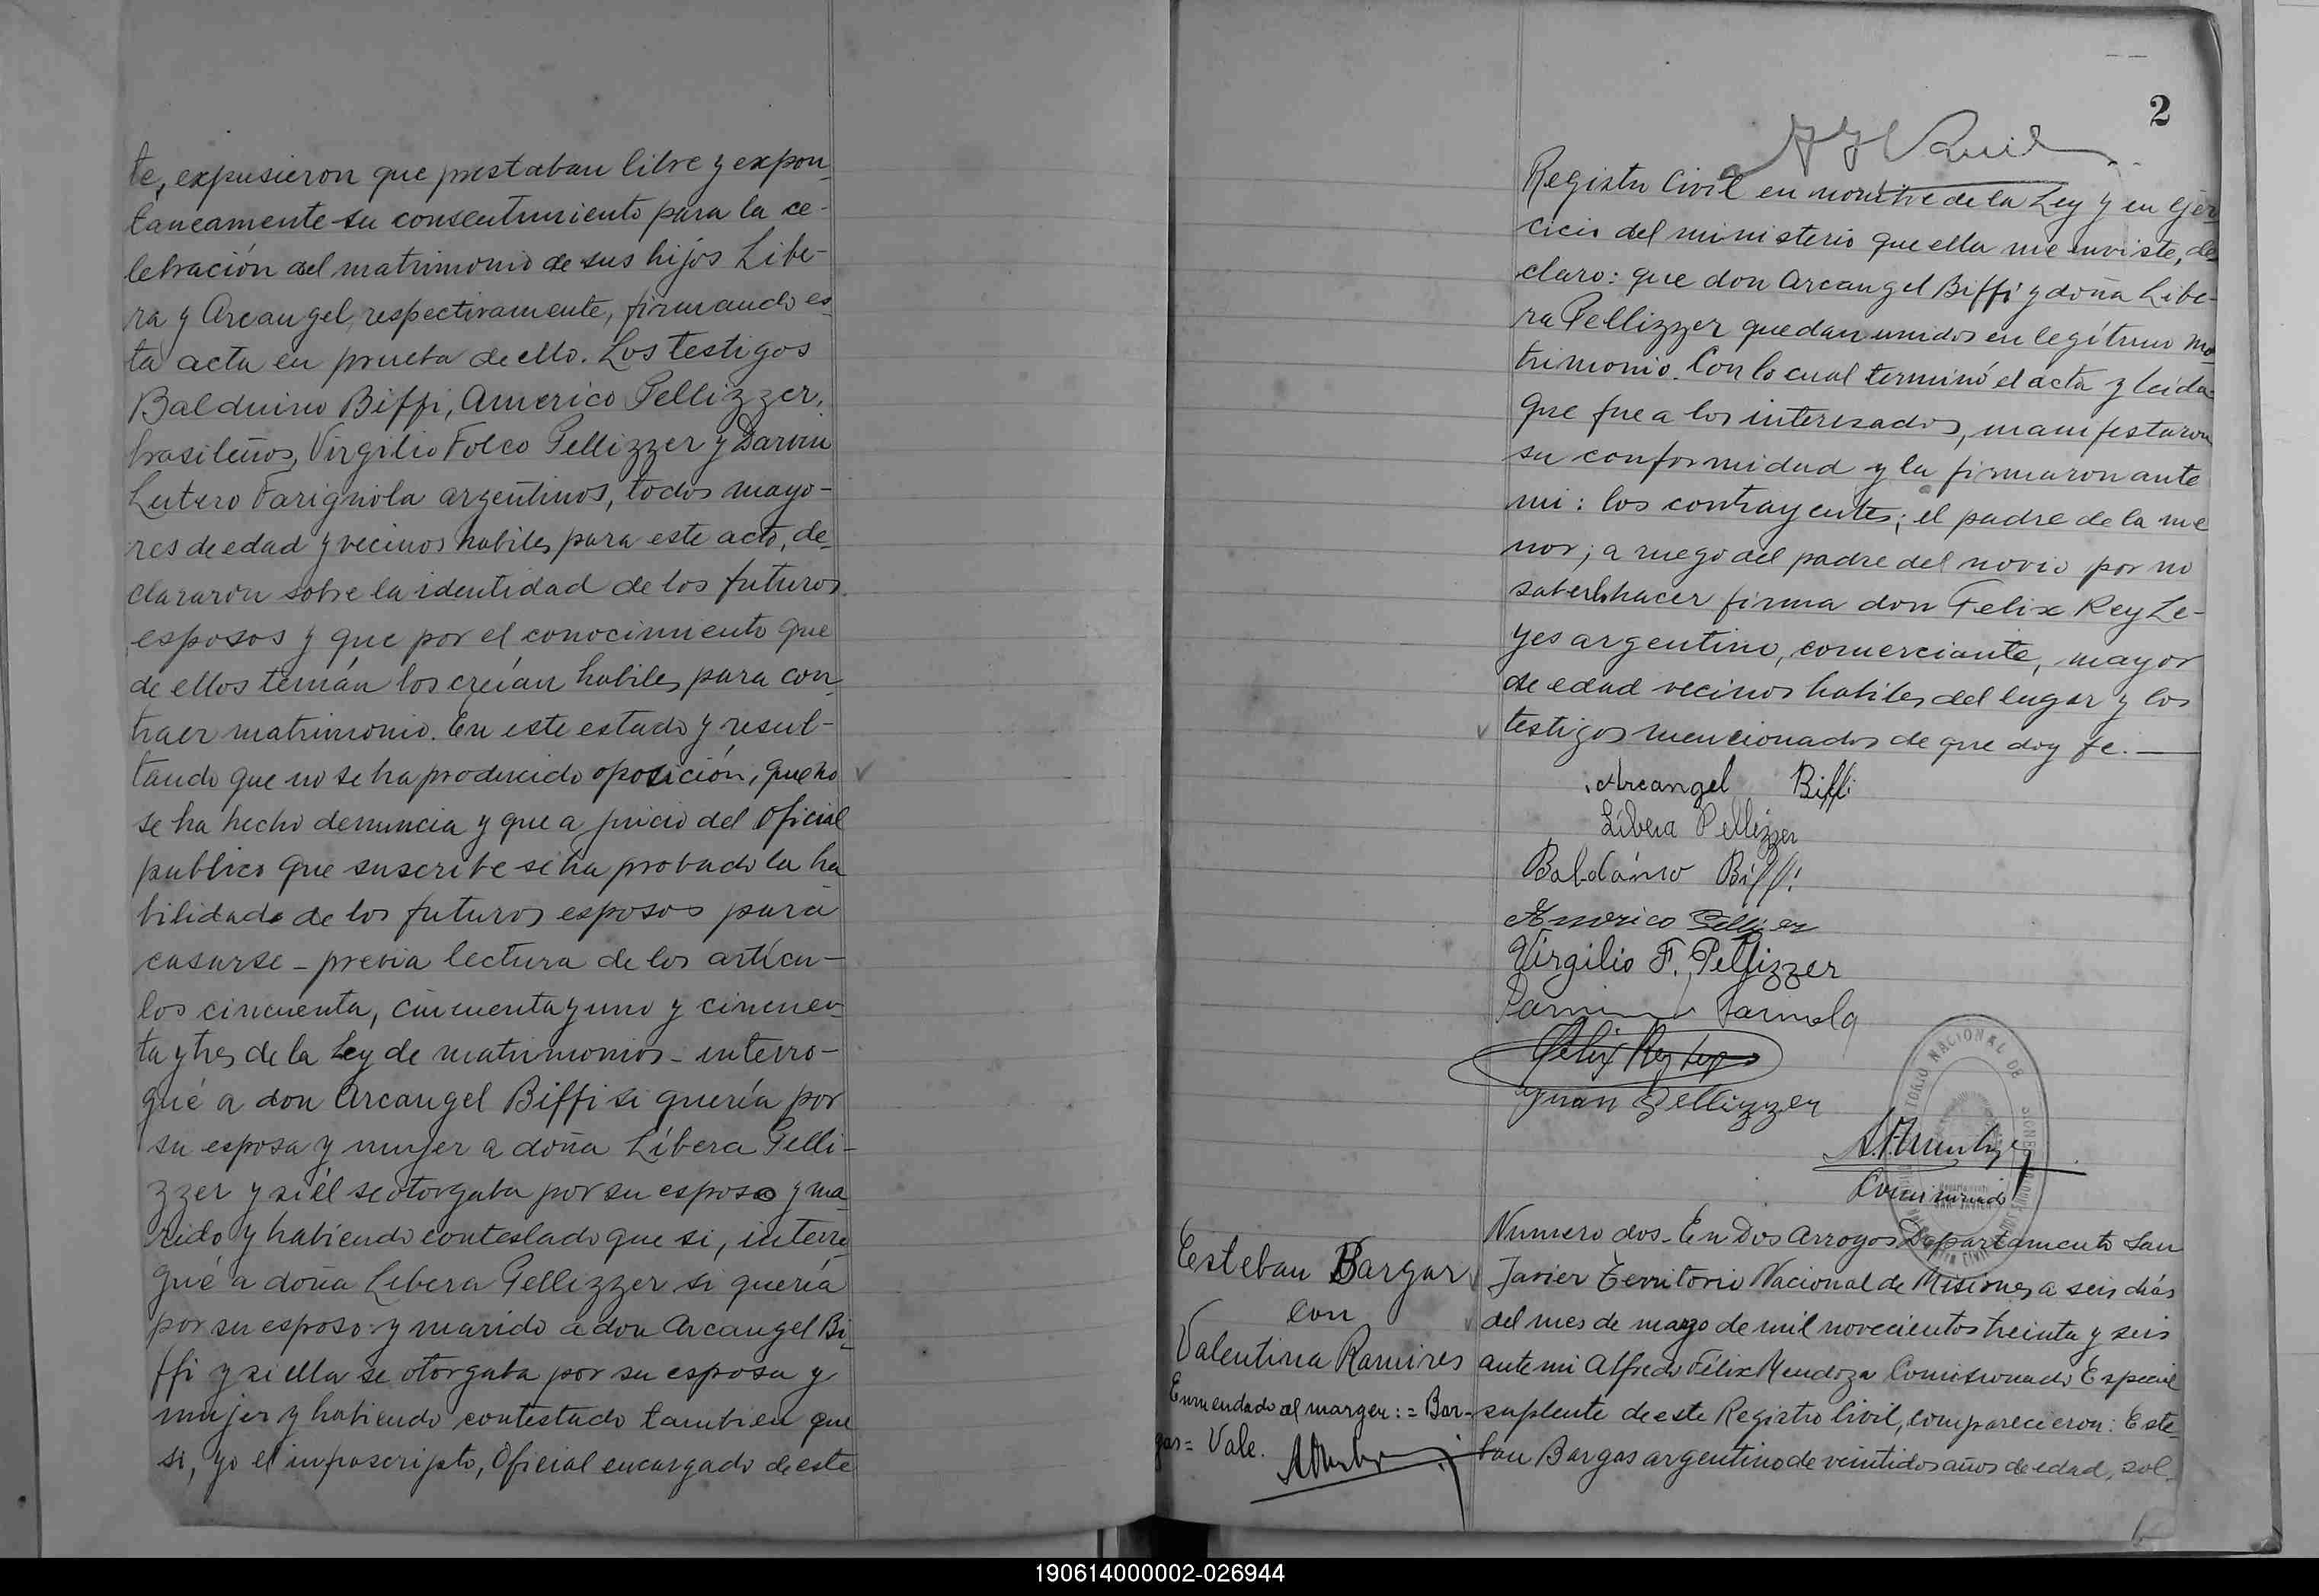 te, expusieron que prestaban libre y expon-
taneamente su consentimiento para la ce-
lebración del matrimonio de sus hijos Libe-
ra y Arcangel, respectivamente, firmando es-
ta acta en prueba de ello. Los testigos
Balduino Biffi, Americo Pellizzer,
brasileños, Virgilio Folco Pellizzer y Darvin
Lutero Farignola argentinos, todos mayo-
res de edad y vecinos habiles para este acto, de-
clararon sobre la identidad de los futuros
esposos y que por el conocimiento que
de ellos tenían los creían habiles para con-
traer matrimonio. En este estado y resul-
tando que no se ha producido oposición, que no
se ha hecho denuncia y que a juicio del Oficial
publico que suscribe se ha probado la ha-
bilidad de los futuros esposos para
casarse - previa lectura de los artícu-
los cincuenta, cincuenta y uno y cincuen-
ta y tres de la Ley de matrimonios - interro-
gué a don Arcangel Biffi si quería por
su esposa y mujer a doña Líbera Pelli-
zzer y si él se otorgaba por su esposo y ma-
rido y habiendo contestado que si, interro-
gué a doña Libera Pellizzer si quería
por su esposo y marido a don Arcangel Bi-
ffi y si ella se otorgaba por su esposa y
mujer y habiendo contestado tambien que
si, yo el infrascripto, Oficial encargado de este
2
Registro Civil en nombre de la Ley y en ejer-
cicio del ministerio que ella me inviste, de-
claro: que don Arcangel Biffi y doña Libe-
ra Pellizzer quedan unidos en legítimo ma-
trimonio. Con lo cual terminó el acta y leida
que fue a los interesados, manifestaron
su conformidad y la firmaron ante
mi: los contrayentes; el padre de la me
nor; a ruego del padre del novio por no
saberlo hacer firma don Felix Rey Le-
yes argentino, comerciante, mayor
de edad vecinos habiles del lugar y los
testigos mencionados de que doy fe.
Arcangel Biffi
Líbera Pellizzer
Balduino Biffi
Americo Pellizzer
Virgilio F. Pellizzer
Felix Rey Leyes
Juan Pellizzer
Comisionado
Esteban Bargas
con
Valentina Ramires
Enmendado al margen: = Bar-
gas = Vale.
Numero dos - En Dos Arroyos Departamento San
Javier Territorio Nacional de Misiones a seis días
del mes de marzo de mil novecientos treinta y seis
ante mi Alfredo Félix Mendoza Comisionado Especial
suplente de este Registro Civil, comparecieron: Este-
ban Bargas argentino de veintidos años de edad, sol-
190614000002-026944